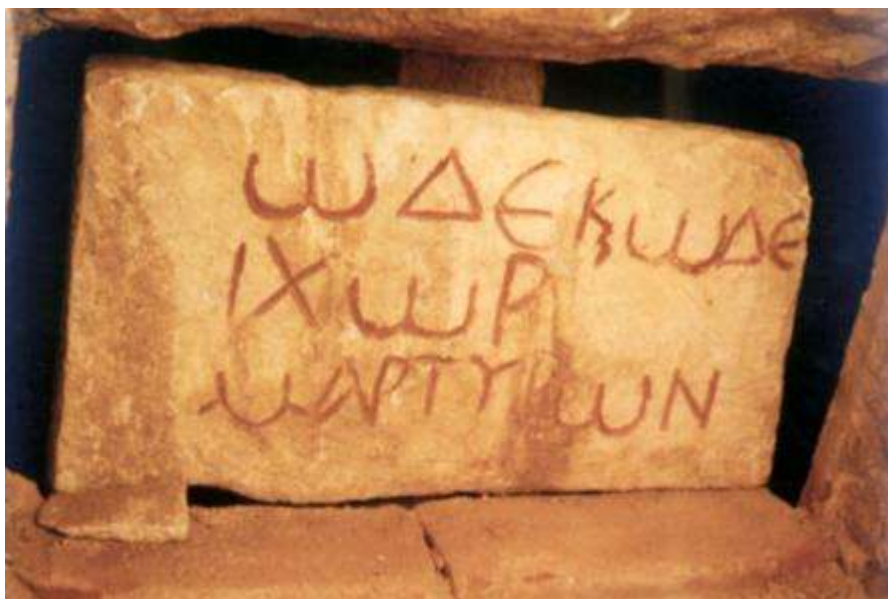 ΩΔΕ Ϗ ΩΔΕ
ΙΧΩΡ
ΜΑΡΤΥΡΩΝ